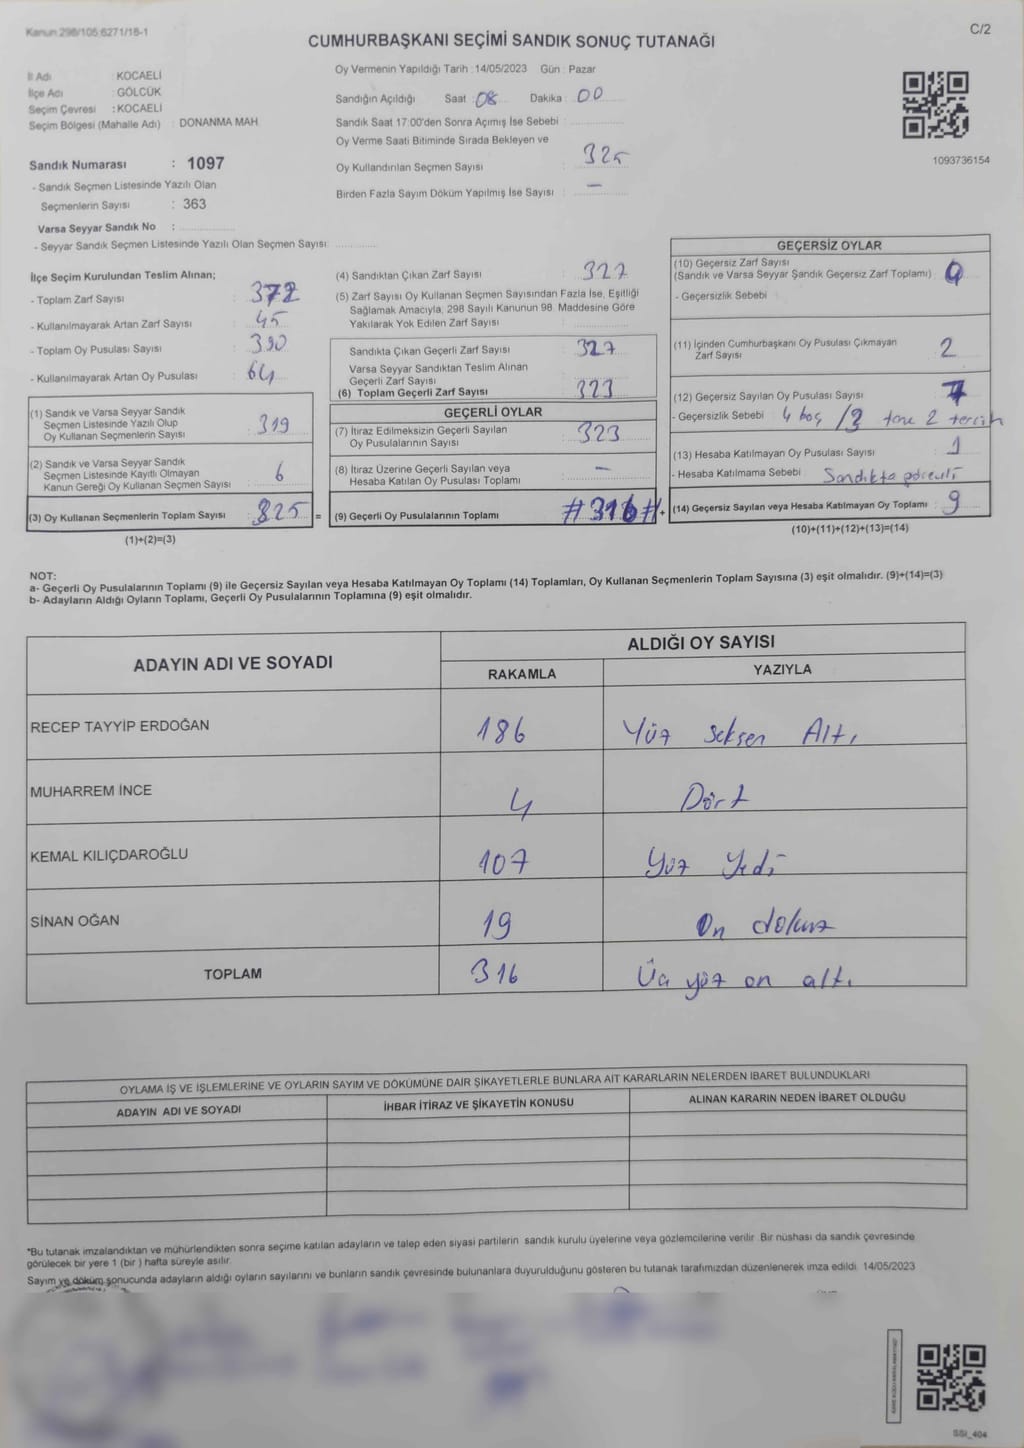 Kanun 298/105;6271/16-1
C/2
CUMHURBAŞKANI SEÇİMİ SANDIK SONUÇ TUTANAĞI
İl Adı : KOCAELİ
İlçe Adı : GÖLCÜK
Seçim Çevresi : KOCAELİ
Seçim Bölgesi (Mahalle Adı) : DONANMA MAH.
Sandık Numarası : 1097
- Sandık Seçmen Listesinde Yazılı Olan
Seçmenlerin Sayısı : 363
Varsa Seyyar Sandık No :
- Seyyar Sandık Seçmen Listesinde Yazılı Olan Seçmen Sayısı:
Oy Vermenin Yapıldığı Tarih :14/05/2023 Gün : Pazar
Sandığın Açıldığı Saat : 08 Dakika : 00
Sandık Saat 17:00'den Sonra Açımış İse Sebebi :
Oy Verme Saati Bitiminde Sırada Bekleyen ve
Oy Kullandırılan Seçmen Sayısı : 325
Birden Fazla Sayım Döküm Yapılmış İse Sayısı : —
1093736154
İlçe Seçim Kurulundan Teslim Alınan;
- Toplam Zarf Sayısı : 372
- Kullanılmayarak Artan Zarf Sayısı : 45
- Toplam Oy Pusulası Sayısı : 390
- Kullanılmayarak Artan Oy Pusulası : 64
(1) Sandık ve Varsa Seyyar Sandık
Seçmen Listesinde Yazılı Olup
Oy Kullanan Seçmenlerin Sayısı : 319
(2) Sandık ve Varsa Seyyar Sandık
Seçmen Listesinde Kayıtlı Olmayan
Kanun Gereği Oy Kullanan Seçmen Sayısı : 6
(3) Oy Kullanan Seçmenlerin Toplam Sayısı : 325 =
(1)+(2)=(3)
(4) Sandıktan Çıkan Zarf Sayısı : 327
(5) Zarf Sayısı Oy Kullanan Seçmen Sayısından Fazla İse, Eşitliği
Sağlamak Amacıyla, 298 Sayılı Kanunun 98. Maddesine Göre
Yakılarak Yok Edilen Zarf Sayısı :
Sandıkta Çıkan Geçerli Zarf Sayısı : 327
Varsa Seyyar Sandıktan Teslim Alınan
Geçerli Zarf Sayısı
(6) Toplam Geçerli Zarf Sayısı : 323
GEÇERLİ OYLAR
(7) İtiraz Edilmeksizin Geçerli Sayılan
Oy Pusulalarının Sayısı : 323
(8) İtiraz Üzerine Geçerli Sayılan veya
Hesaba Katılan Oy Pusulası Toplamı : —
(9) Geçerli Oy Pusulalarının Toplamı : #316# +
GEÇERSİZ OYLAR
(10) Geçersiz Zarf Sayısı
(Sandık ve Varsa Seyyar Şandık Geçersiz Zarf Toplamı) :
- Geçersizlik Sebebi :
(11) İçinden Cumhurbaşkanı Oy Pusulası Çıkmayan
Zarf Sayısı : 2
(12) Geçersiz Sayılan Oy Pusulası Sayısı : 7
- Geçersizlik Sebebi : 4 boş /3 tane 2 tercih
(13) Hesaba Katılmayan Oy Pusulası Sayısı : 1
- Hesaba Katılmama Sebebi : Sandıkta görevli
(14) Geçersiz Sayılan veya Hesaba Katılmayan Oy Toplamı : 9
(10)+(11)+(12)+(13)=(14)
NOT:
a- Geçerli Oy Pusulalarının Toplamı (9) ile Geçersiz Sayılan veya Hesaba Katılmayan Oy Toplamı (14) Toplamları, Oy Kullanan Seçmenlerin Toplam Sayısına (3) eşit olmalıdır. (9)+(14)=(3)
b- Adayların Aldığı Oyların Toplamı, Geçerli Oy Pusulalarının Toplamına (9) eşit olmalıdır.
ADAYIN ADI VE SOYADI
ALDIĞI OY SAYISI
RAKAMLA YAZIYLA
RECEP TAYYİP ERDOĞAN 186 Yüz seksen Altı
MUHARREM İNCE 4 Dört
KEMAL KILIÇDAROĞLU 107 Yüz Yedi
SİNAN OĞAN 19 On dokuz
TOPLAM 316 Üç yüz on altı
OYLAMA İŞ VE İŞLEMLERİNE VE OYLARIN SAYIM VE DÖKÜMÜNE DAİR ŞİKAYETLERLE BUNLARA AİT KARARLARIN NELERDEN İBARET BULUNDUKLARI
ADAYIN ADI VE SOYADI İHBAR İTİRAZ VE ŞİKAYETİN KONUSU ALINAN KARARIN NEDEN İBARET OLDUĞU
*Bu tutanak imzalandıktan ve mühürlendikten sonra seçime katılan adayların ve talep eden siyasi partilerin sandık kurulu üyelerine veya gözlemcilerine verilir. Bir nüshası da sandık çevresinde
görülecek bir yere 1 (bir ) hafta süreyle asılır.
Sayım ve döküm sonucunda adayların aldığı oyların sayılarını ve bunların sandık çevresinde bulunanlara duyurulduğunu gösteren bu tutanak tarafımızdan düzenlenerek imza edildi. 14/05/2023
SSI_404